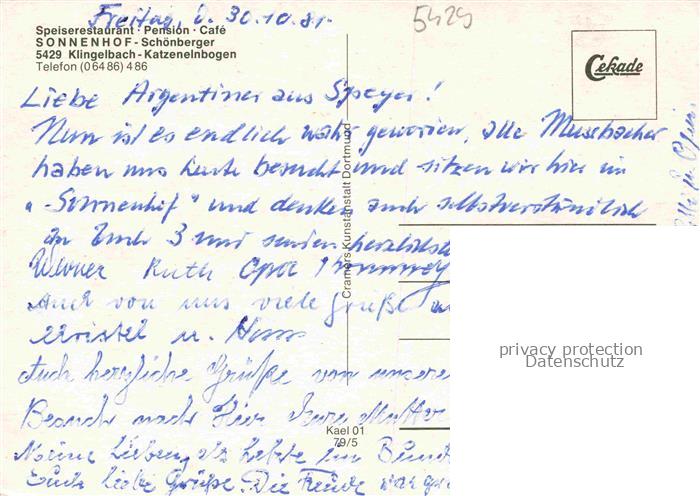 Freitag, d. 30.10.81.
5429
Speiserestaurant · Pension · Café
SONNENHOF - Schönberger
5429 Klingelbach - Katzenelnbogen
Telefon (06486) 486
Cekade
Liebe Argentiner aus Speyer!
Nun ist es endlich wahr geworden, alle Mussbacher
haben uns heute besucht und sitzen wir hier im
"Sonnenhof" und denken auch selbstverständlich
an Euch 3 und senden herzlichste
Werner Ruth Opa
Auch von uns viele Grüße
Kristel u. Hans
Auch herzliche Grüße von unserem
Besuch nach Hier Eure Mutter
Meine Lieben, als Letzte im Bund
Euch liebe Grüße. Die Freude war
Cramers Kunstanstalt Dortmund
Kael 01
79/5
privacy protection
Datenschutz